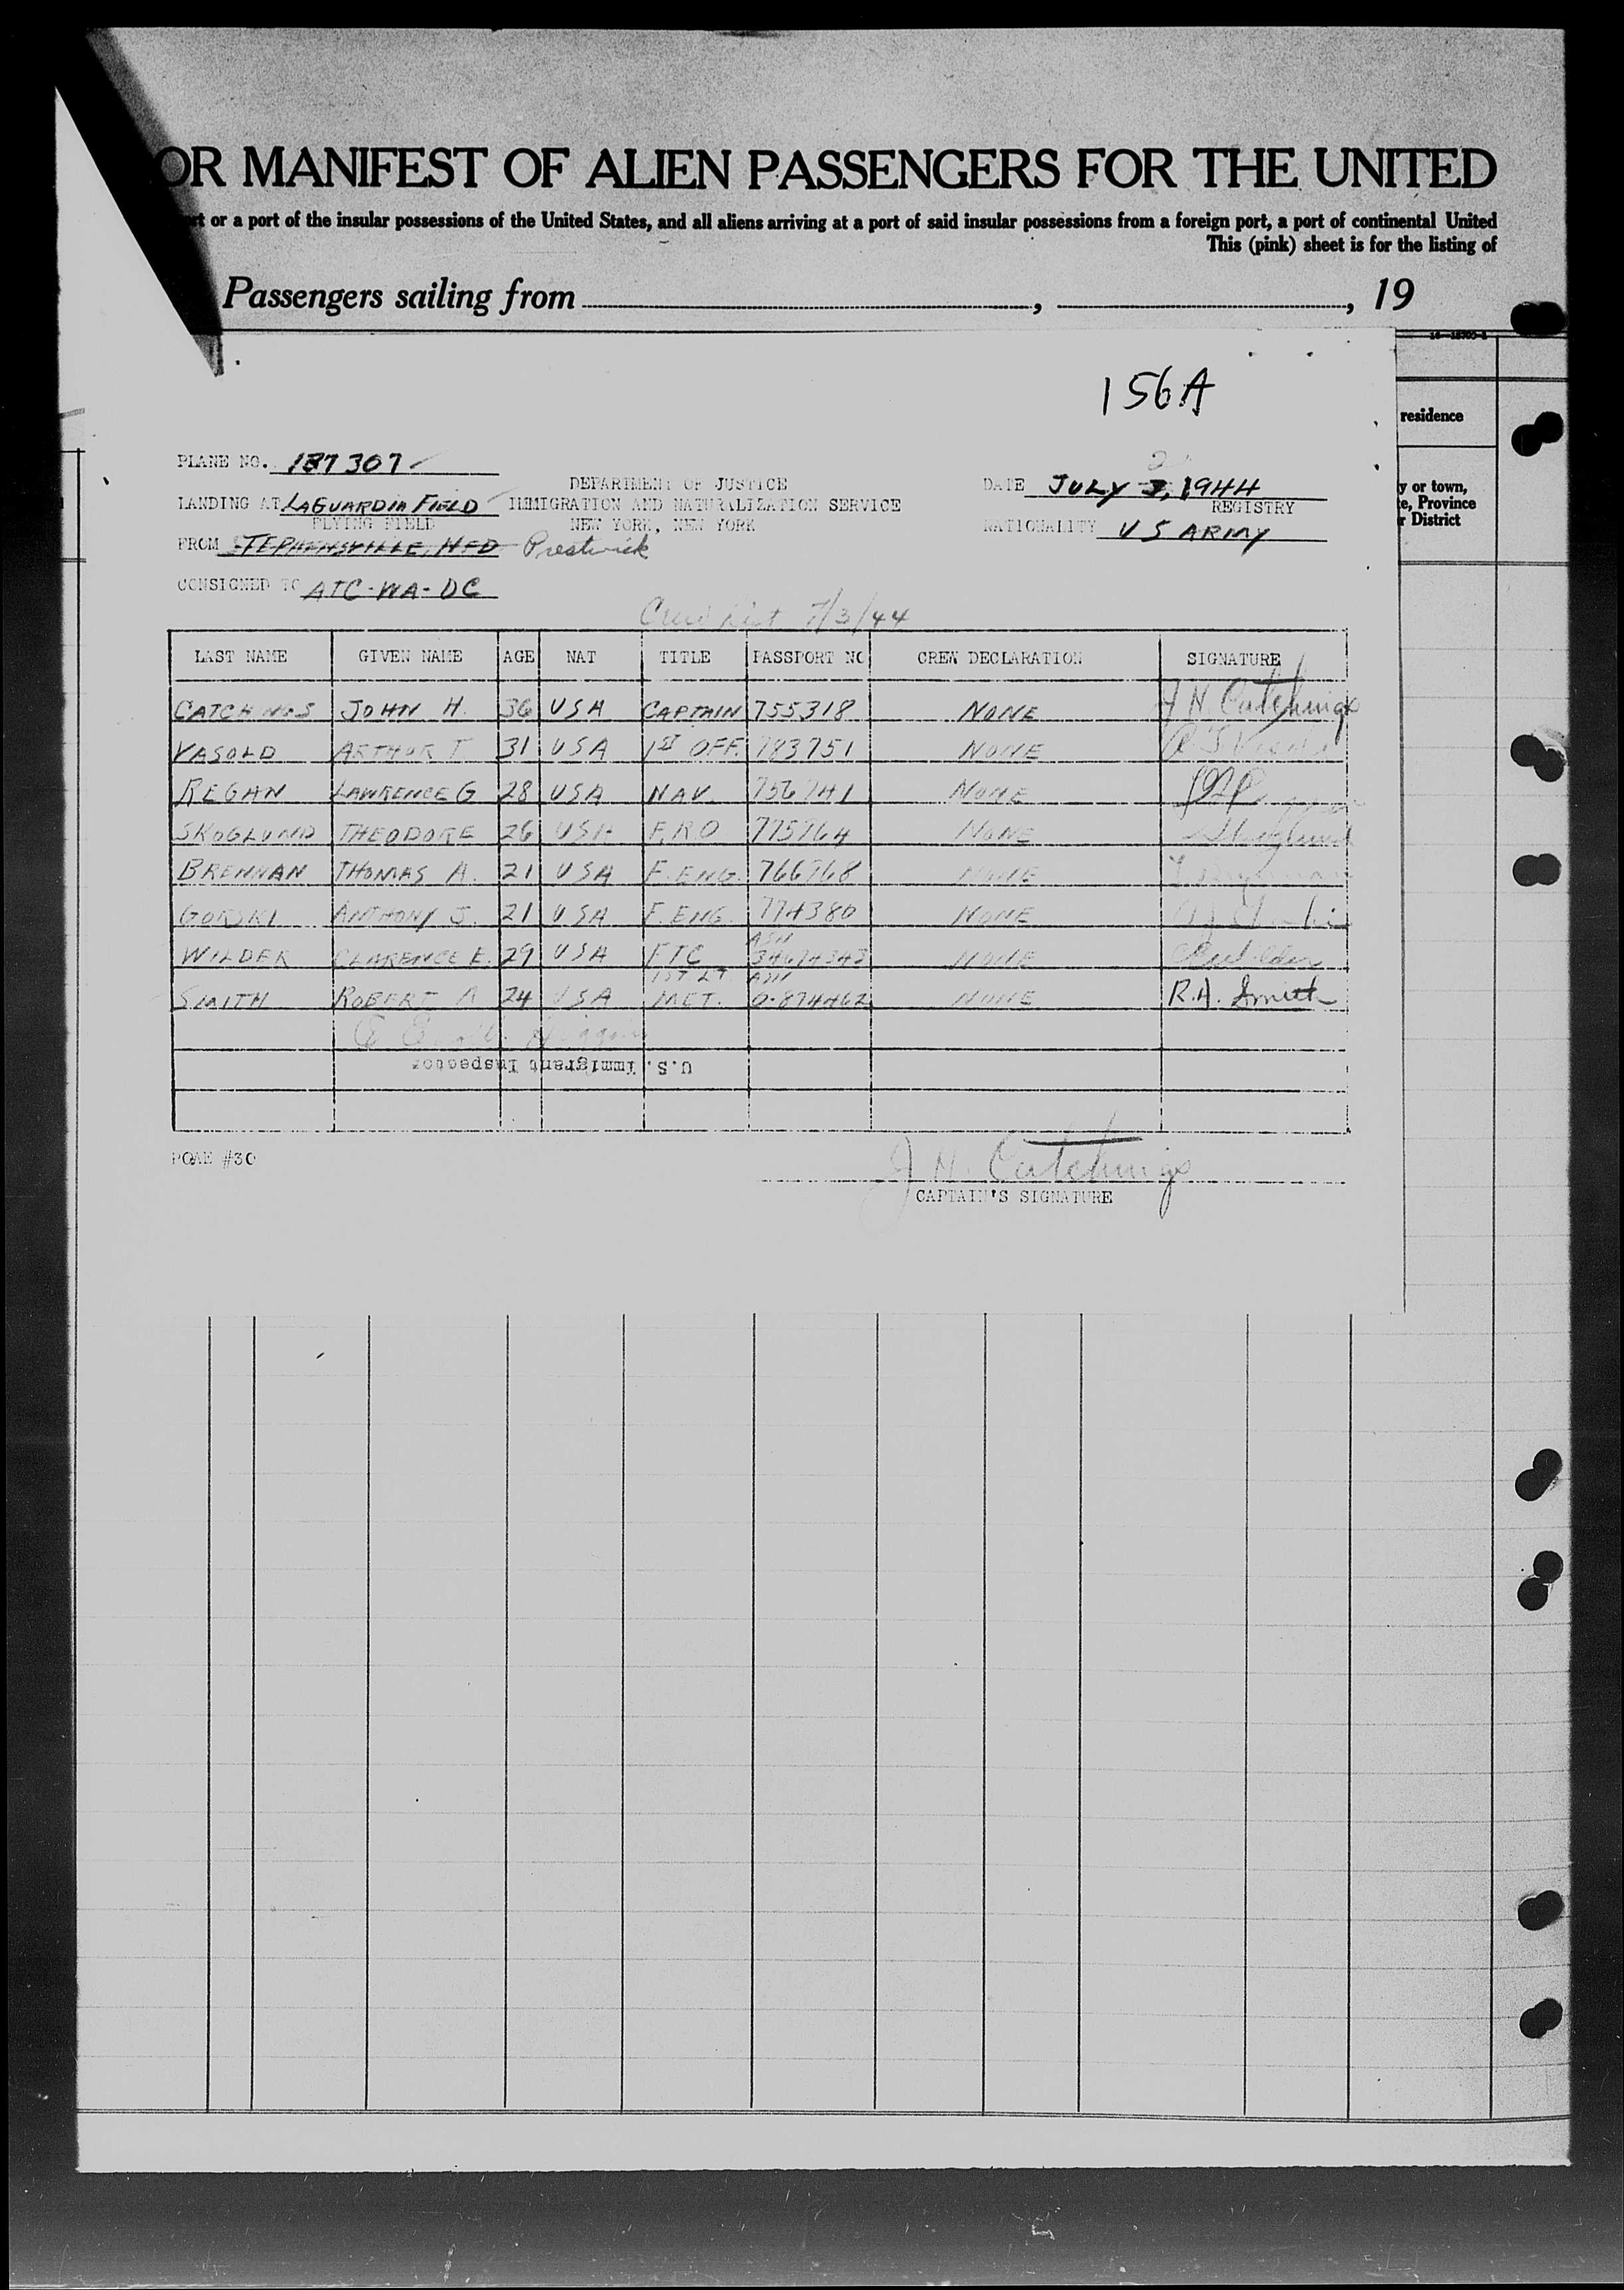 OR MANIFEST OF ALIEN PASSENGERS FOR THE UNITED
or a port of the insular possessions of the United States, and all aliens arriving at a port of said insular possessions from a foreign port, a port of continental United
This (pink) sheet is for the listing of
Passengers sailing from , , 19
residence
y or town,
Province
District
156A
PLANE NO. 187307
DEPARTMENT OF JUSTICE
DATE JULY 3, 1944
2
LANDING AT LAGUARDIA FIELD IMMIGRATION AND NATURALIZATION SERVICE REGISTRY
FLYING FIELD NEW YORK, NEW YORK NATIONALITY US ARMY
FROM STEPHENSVILLE, NFD Prestwick
CONSIGNED TO ATC-WA-DC
Crew List 7/3/44
LAST NAME GIVEN NAME AGE NAT TITLE PASSPORT NO CREW DECLARATION SIGNATURE
CATCHINGS JOHN H. 36 USA CAPTAIN 755318 NONE J H. Catchings
VASOLD ARTHUR T 31 USA 1ST OFF. 783751 NONE
REGAN LAWRENCE G 28 USA NAV. 756741 NONE
SKOGLUND THEODORE 26 USA F.R.O 775764 NONE Skoglund
BRENNAN THOMAS A. 21 USA F. ENG. 766768 NONE
GORSKI ANTHONY J. 21 USA F. ENG. 774380 NONE
WILDER CLARENCE E. 29 USA FTC ASN 34674343 NONE
SMITH ROBERT A 24 USA 1ST LT MET. ASN O-874462 NONE R.A. Smith
U.S. Immigrant Inspector
POAE #30
J. H. Catchings
CAPTAIN'S SIGNATURE